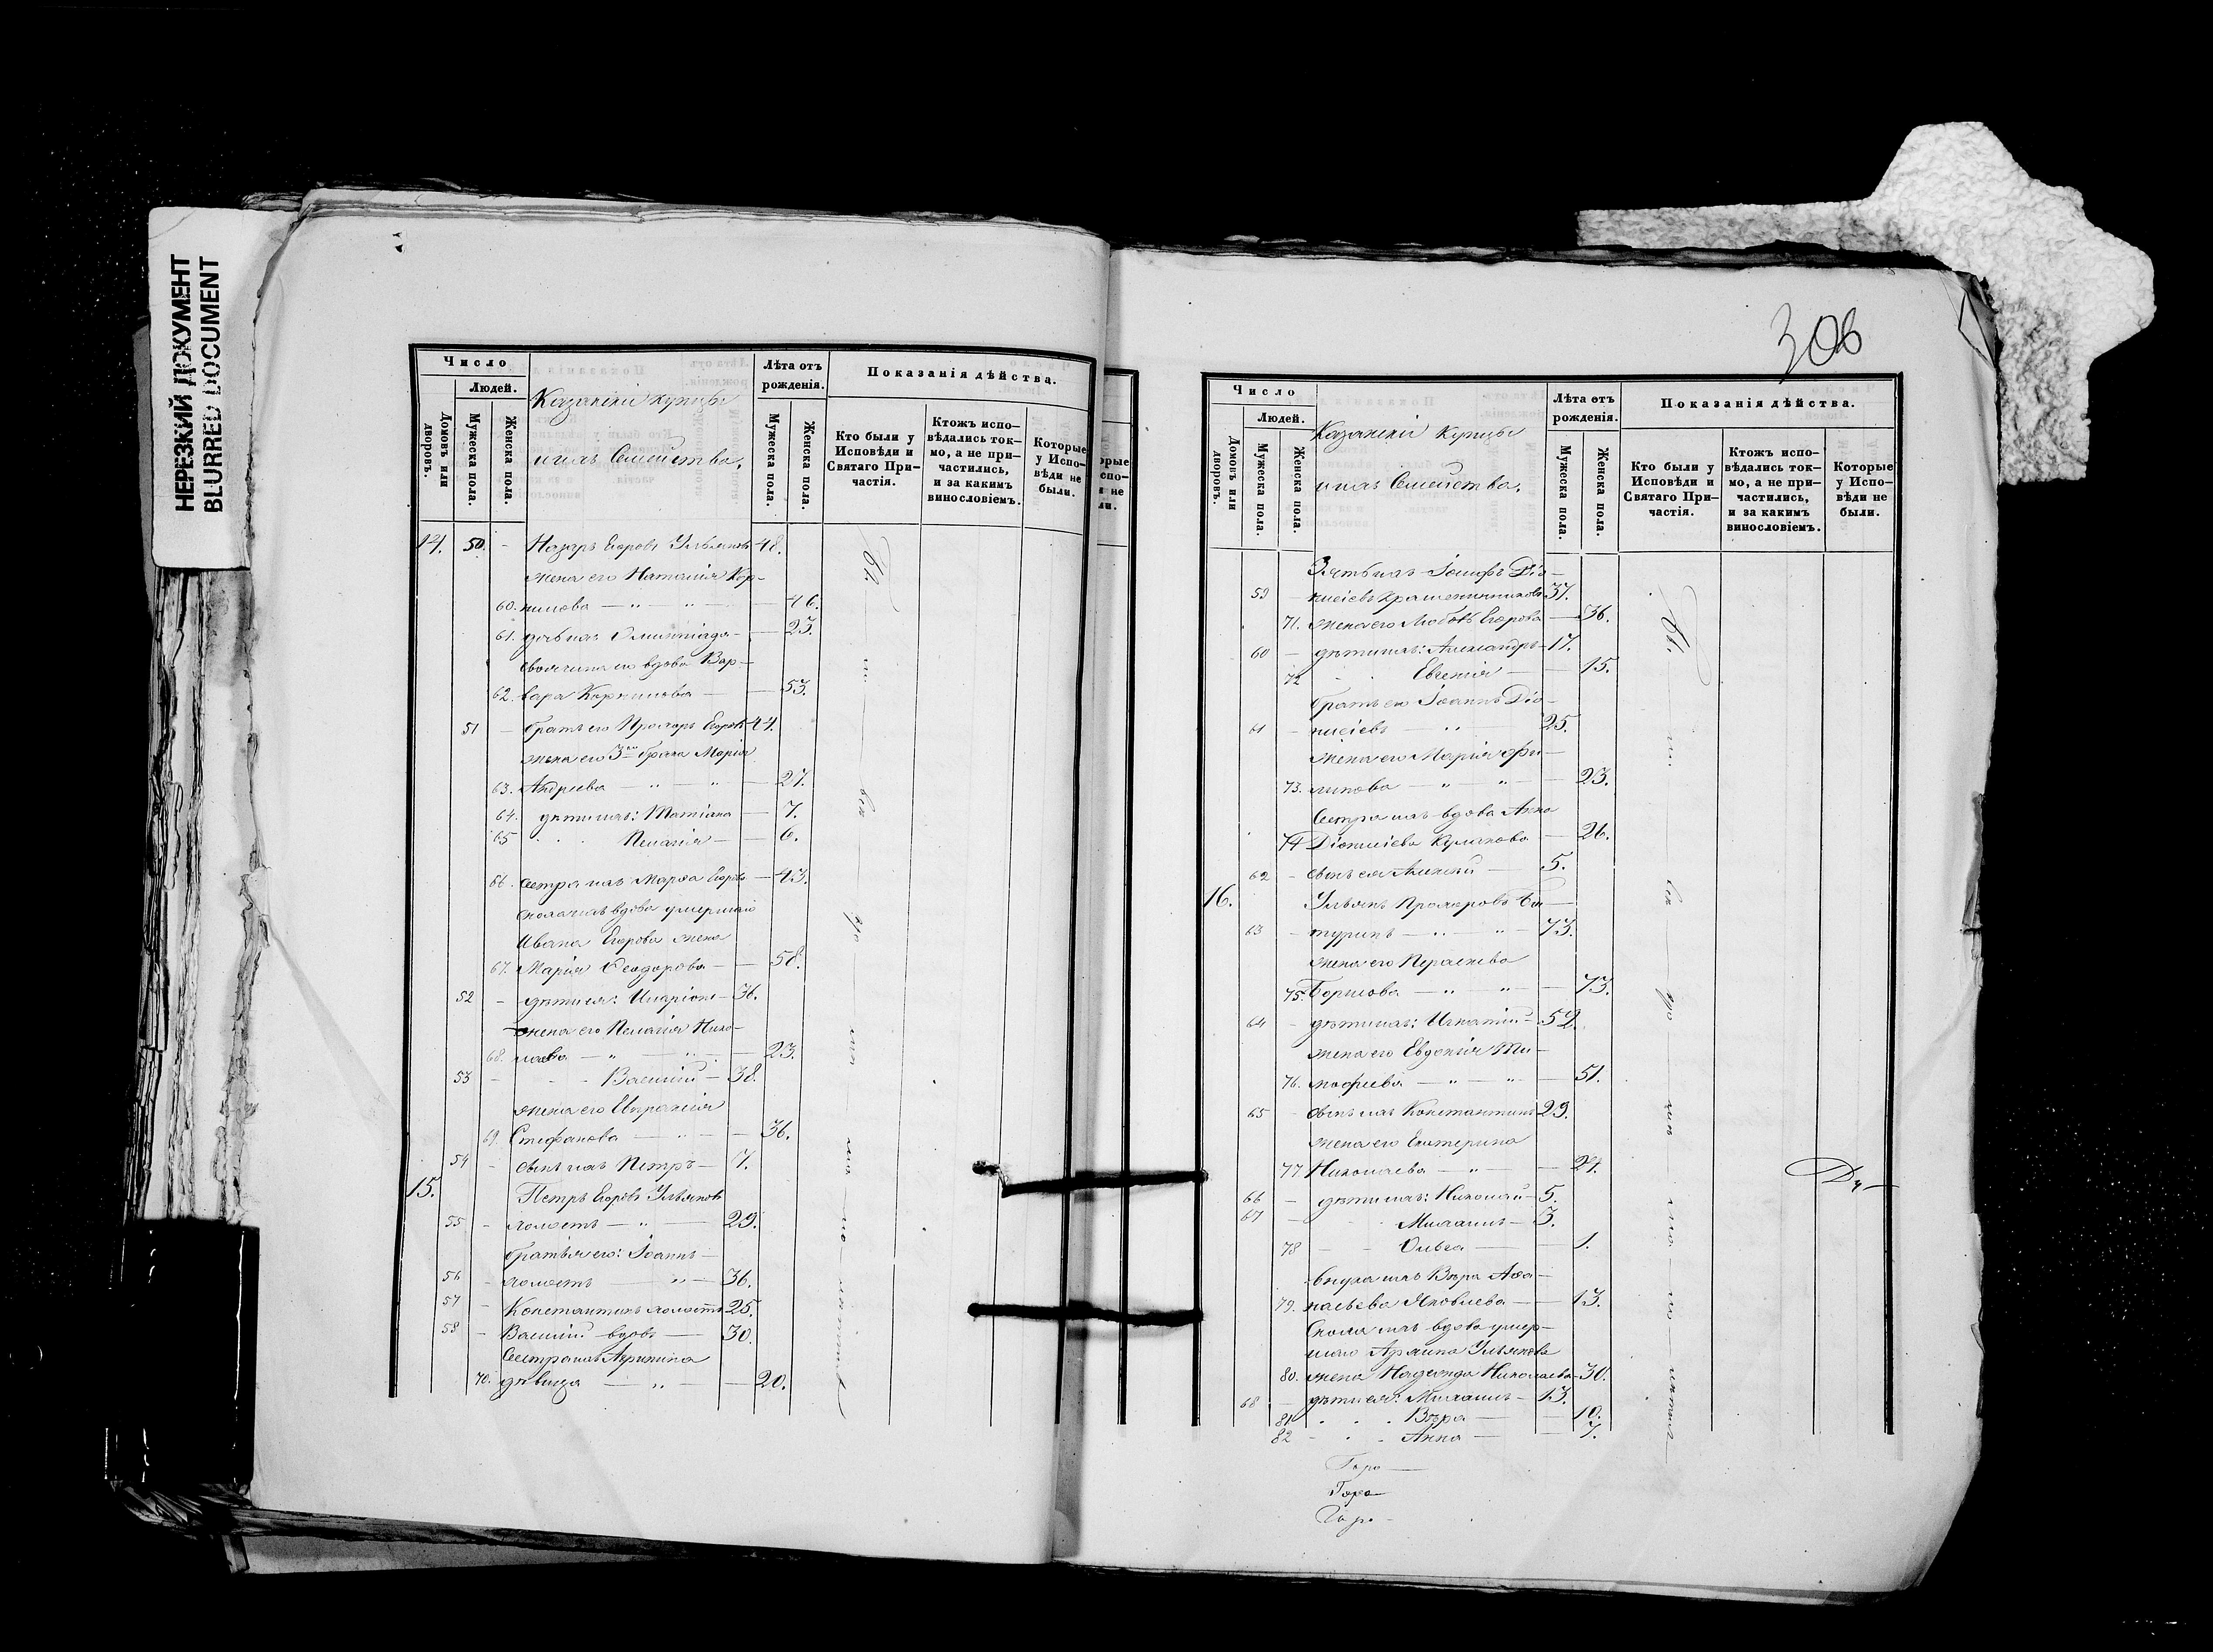 НЕРЕЗКИЙ ДОКУМЕНТ
BLURRED DOCUMENT
Число
Людей.
Домовъ или дворовъ.
Мужеска пола.
Женска пола.
Казанскіи купцы
и ихъ Семейства.
Лѣта отъ рожденія.
Мужеска пола.
Женска пола.
Показанія дѣйства.
Кто были у Исповѣди и Святаго Причастія.
Ктожъ исповѣдались токмо, а не причастились, и за какимъ винословіемъ.
Которые у Исповѣди не были.
14. 50. - Назаръ Егоровъ Ульяновъ 48.
жена его Наталія Кор-
60. нилова — " — " — 46.
61. дочь ихъ Олимпіада — 23.
своячина его вдова Вар-
62. вара Корнилова — 53.
51 - братъ его Прохоръ Егоровъ 44.
жена его 3го брака Марія
63. Андреева — " — " — 27.
64. дѣти ихъ: Татіана — 7.
65 Пелагія — 6.
66. сестра ихъ Марѳа Егорова — 43.
сноха ихъ вдова умершаго
Ивана Егорова жена
67. Марія Ѳеодорова — 58.
52 - дѣти ея: Иларіонъ — 36.
жена его Пелагія Нико-
68. лаева — " — " — 23.
53 - Василій — 38.
жена его Евпраксія
69. Стефанова — " — 36.
54 - сынъ ихъ Петръ — 7.
15. Петръ Егоровъ Ульяновъ
55 - холостъ — " — 29.
братья его: Іоаннъ —
56 - холостъ — " — 36.
57 - Константинъ холостъ 25.
58 - Василій вдовъ — 30.
Сестра ихъ Агрипина
70. дѣвица — " — 20.
306
Число
Людей.
Домовъ или дворовъ.
Мужеска пола.
Женска пола.
Казанскіи купцы
и ихъ Семейства.
Лѣта отъ рожденія.
Мужеска пола.
Женска пола.
Показанія дѣйства.
Кто были у Исповѣди и Святаго Причастія.
Ктожъ исповѣдались токмо, а не причастились, и за какимъ винословіемъ.
Которые у Исповѣди не были.
Зять ихъ Іосифъ Діо-
59 - нисіевъ Крашенинниковъ 37.
71. жена его Любовь Егорова — 36.
60 - дѣти ихъ: Александръ — 17.
72 Евгенія — 15.
братъ его Іоаннъ Діо-
61 - нисіевъ — " — 25.
жена его Марія Фи-
73. липова — " — " — 23.
Сестра ихъ вдова Анна
74 Діонисіева Кулакова — 26.
62 - сынъ ея Алексій — 5.
16. Ульянъ Прохоровъ Ба-
63 - туринъ — " — " — 73.
жена его Параскева
75. Борисова — " — " — 73.
64 - дѣти ихъ: Игнатій — 52.
жена его Евдокія Ти-
76. моѳеева — " — " — 51.
65 - сынъ ихъ Константинъ 29.
жена его Екатерина
77 Николаева — " — 27.
66 - дѣти ихъ: Николай — 5.
67 - Михаилъ — 3.
78 - Ольга — 1.
внука ихъ Вѣра Аѳа-
79. насьева Яковлева — 13.
Сноха ихъ вдова умер-
шаго
80. жена Надежда Николаева — 30.
68 - дѣти ея: Михаилъ — 13.
81 Вѣра — 10.
82 Анна — 7.